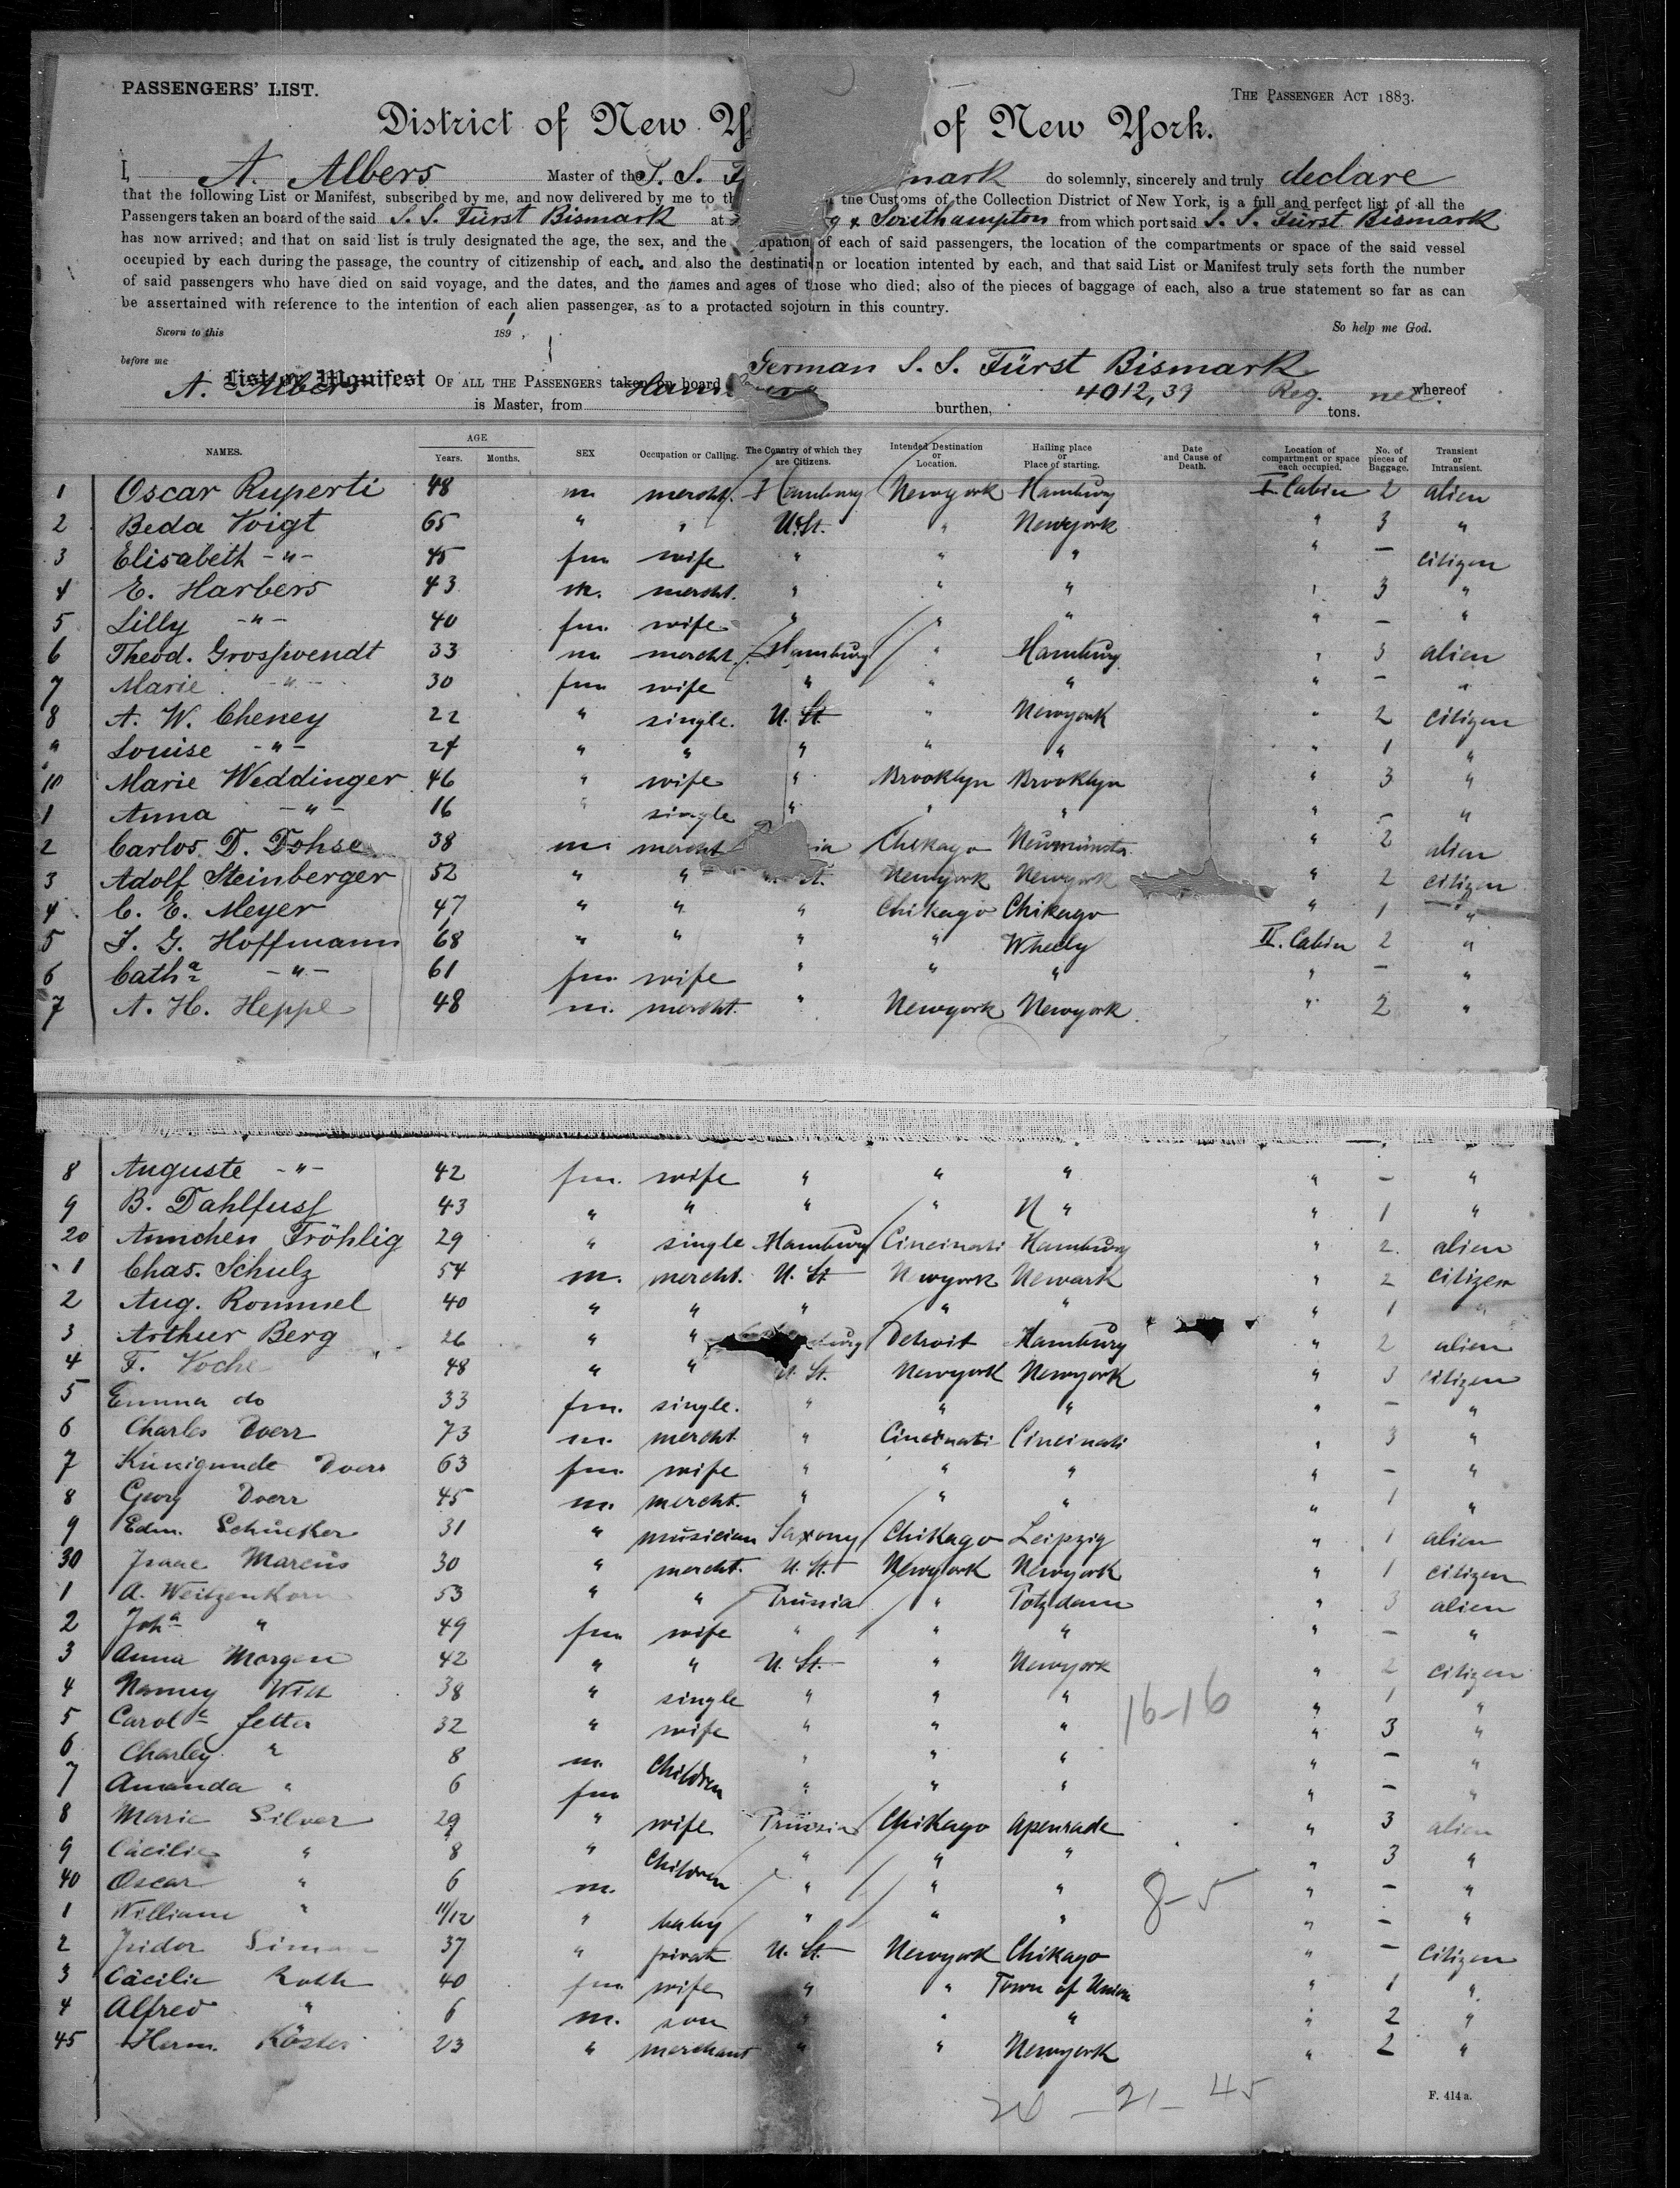 PASSENGERS' LIST.
THE PASSENGER ACT 1883.
District of New Y of New York.
I, A. Albers Master of the S. S. F mark do solemnly, sincerely and truly declare
that the following List or Manifest, subscribed by me, and now delivered by me to the Customs of the Collection District of New York, is a full and perfect list of all the
Passengers taken an board of the said S. S. Fürst Bismark at g & Southampton from which port said S. S. Fürst Bismark
has now arrived; and that on said list is truly designated the age, the sex, and the upation of each of said passengers, the location of the compartments or space of the said vessel
occupied by each during the passage, the country of citizenship of each, and also the destination or location intented by each, and that said List or Manifest truly sets forth the number
of said passengers who have died on said voyage, and the dates, and the names and ages of those who died; also of the pieces of baggage of each, also a true statement so far as can
be assertained with reference to the intention of each alien passenger, as to a protacted sojourn in this country.
Sworn to this 1891, So help me God.
before me
List or Manifest OF ALL THE PASSENGERS taken on board German S. S. Fürst Bismark whereof
A. Albers is Master, from burthen, 4012,39 Reg. net. tons.
NAMES. AGE Years. Months. SEX Occupation or Calling. The Country of which they are Citizens. Intended Destination or Location. Hailing place or Place of starting. Date and Cause of Death. Location of compartment or space each occupied. No. of pieces of Baggage. Transient or Intransient.
1 Oscar Ruperti 48 m. mercht. Hamburg Newyork Hamburg I. Cabin 2 alien
2 Beda Voigt 65 " " U. St. " Newyork " 3 "
3 Elisabeth -"- 45 fm. wife " " " " — citizen
4 E. Harbers 43 m. mercht. " " " " 3 "
5 Lilly -"- 40 fm. wife " " " " — "
6 Theod. Grosswendt 33 m. mercht. Hamburg " Hamburg " 3 alien
7 Marie -"- 30 fm. wife " " " " — "
8 A. W. Cheney 22 " single. U. St. " Newyork " 2 citizen
9 Louise -"- 24 " " " " " " 1 "
10 Marie Weddinger 46 " wife " Brooklyn Brooklyn " 3 "
1 Anna -"- 16 " single " " " " — "
2 Carlos D. Dohse 38 m. mercht ia Chikago Neumünster " 2 alien
3 Adolf Steinberger 52 " " St. Newyork Newyork " 2 citizen
4 C. E. Meyer 47 " " " Chikago Chikago " 1 "
5 J. G. Hoffmann 68 " " " " Wheely II. Cabin 2 "
6 Catha -"- 61 fm. wife " " " " — "
7 A. H. Heppe 48 m. mercht. " Newyork Newyork " 2 "
8 Auguste -"- 42 fm. wife " " " " — "
9 B. Dahlfuss 43 " " " " N " " 1 "
20 Annchen Fröhlig 29 " single Hamburg Cincinati Hamburg " 2. alien
1 Chas. Schulz 54 m. mercht. U. St Newyork Newark " 2 citizen
2 Aug. Rommel 40 " " " " " " 1 "
3 Arthur Berg 26 " " burg Detroit Hamburg " 2 alien
4 F. Voche 48 " " U. St. Newyork Newyork " 3 citizen
5 Emma do 33 fm. single. " " " " — "
6 Charles Doerr 73 m. mercht. " Cincinati Cincinati " 3 "
7 Kunigunde Doerr 63 fm. wife " " " " — "
8 Georg Doerr 45 m. mercht. " " " " 1 "
9 Edm. Schücker 31 " musician Saxony Chikago Leipzig " 1 alien
30 Isaac Marcus 30 " mercht. U. St. Newyork Newyork " 1 citizen
1 A. Weitzenkorn 53 " " Prussia " Potzdam " 3 alien
2 Joha " 49 fm. wife " " " " — "
3 Anna Morgen 42 " " U. St. " Newyork " 2 citizen
4 Nanny Will 38 " single " " " " 1 "
5 Carole Fetter 32 " wife " " " " 3 "
16-16
6 Charley " 8 m. Children " " " " — "
7 Amanda " 6 fm " " " " — "
8 Marie Silver 29 " wife Prussia Chikago Apenrade " 3 alien
9 Cäcilie " 8 " Children " " " " 3 "
40 Oscar " 6 m. " " " " — "
8-5
1 William " 11/12 " baby " " " " — "
2 Isidor Simon 37 " privat U. St. Newyork Chikago " — citizen
3 Cäcilie Roth 40 fm. wife " " Town of Union " 1 "
4 Alfred " 6 m. son " " " " 2 "
45 Herm. Köster 23 " merchant " " Newyork " 2 "
21 - 45
F. 414 a.